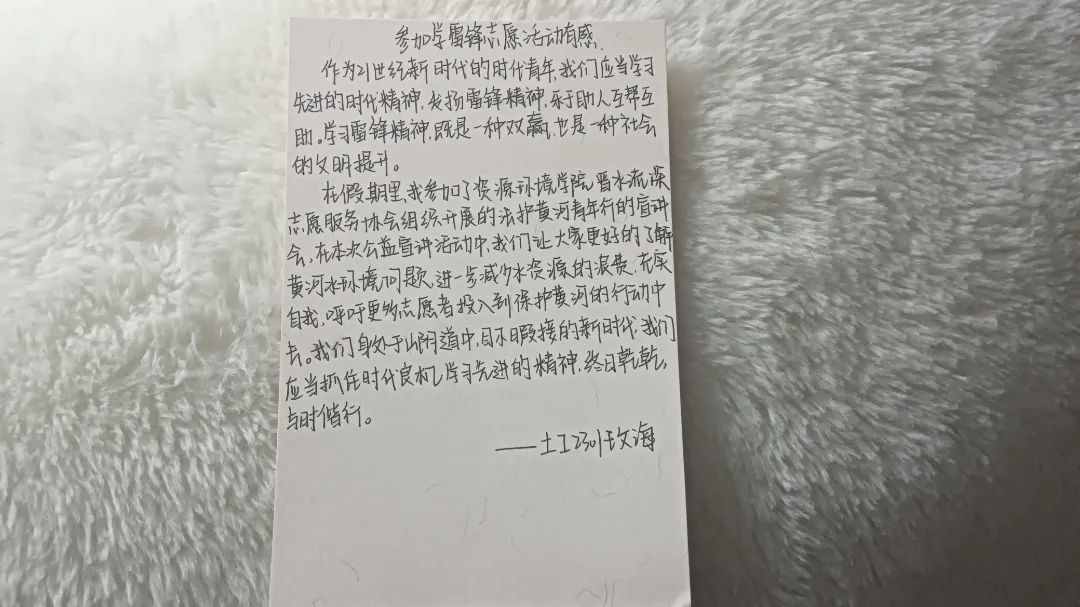 参加学雷锋志愿活动有感
作为21世纪新时代的时代青年,我们应当学习
先进的时代精神,发扬雷锋精神,乐于助人互帮互
助。学习雷锋精神,既是一种双赢,也是一种社会
的文明提升。
在假期里,我参加了资源环境学院晋水流深
志愿服务协会组织开展的法护黄河青年行的宣讲
会,在本次公益宣讲活动中,我们让大家更好的了解
黄河水环境问题,进一步减少水资源的浪费,充实
自我,呼吁更多志愿者投入到保护黄河的行动中
去。我们身处于山阴道中,目不暇接的新时代,我们
应当抓住时代良机,学习先进的精神,终日乾乾,
与时偕行。
——土工2301 海